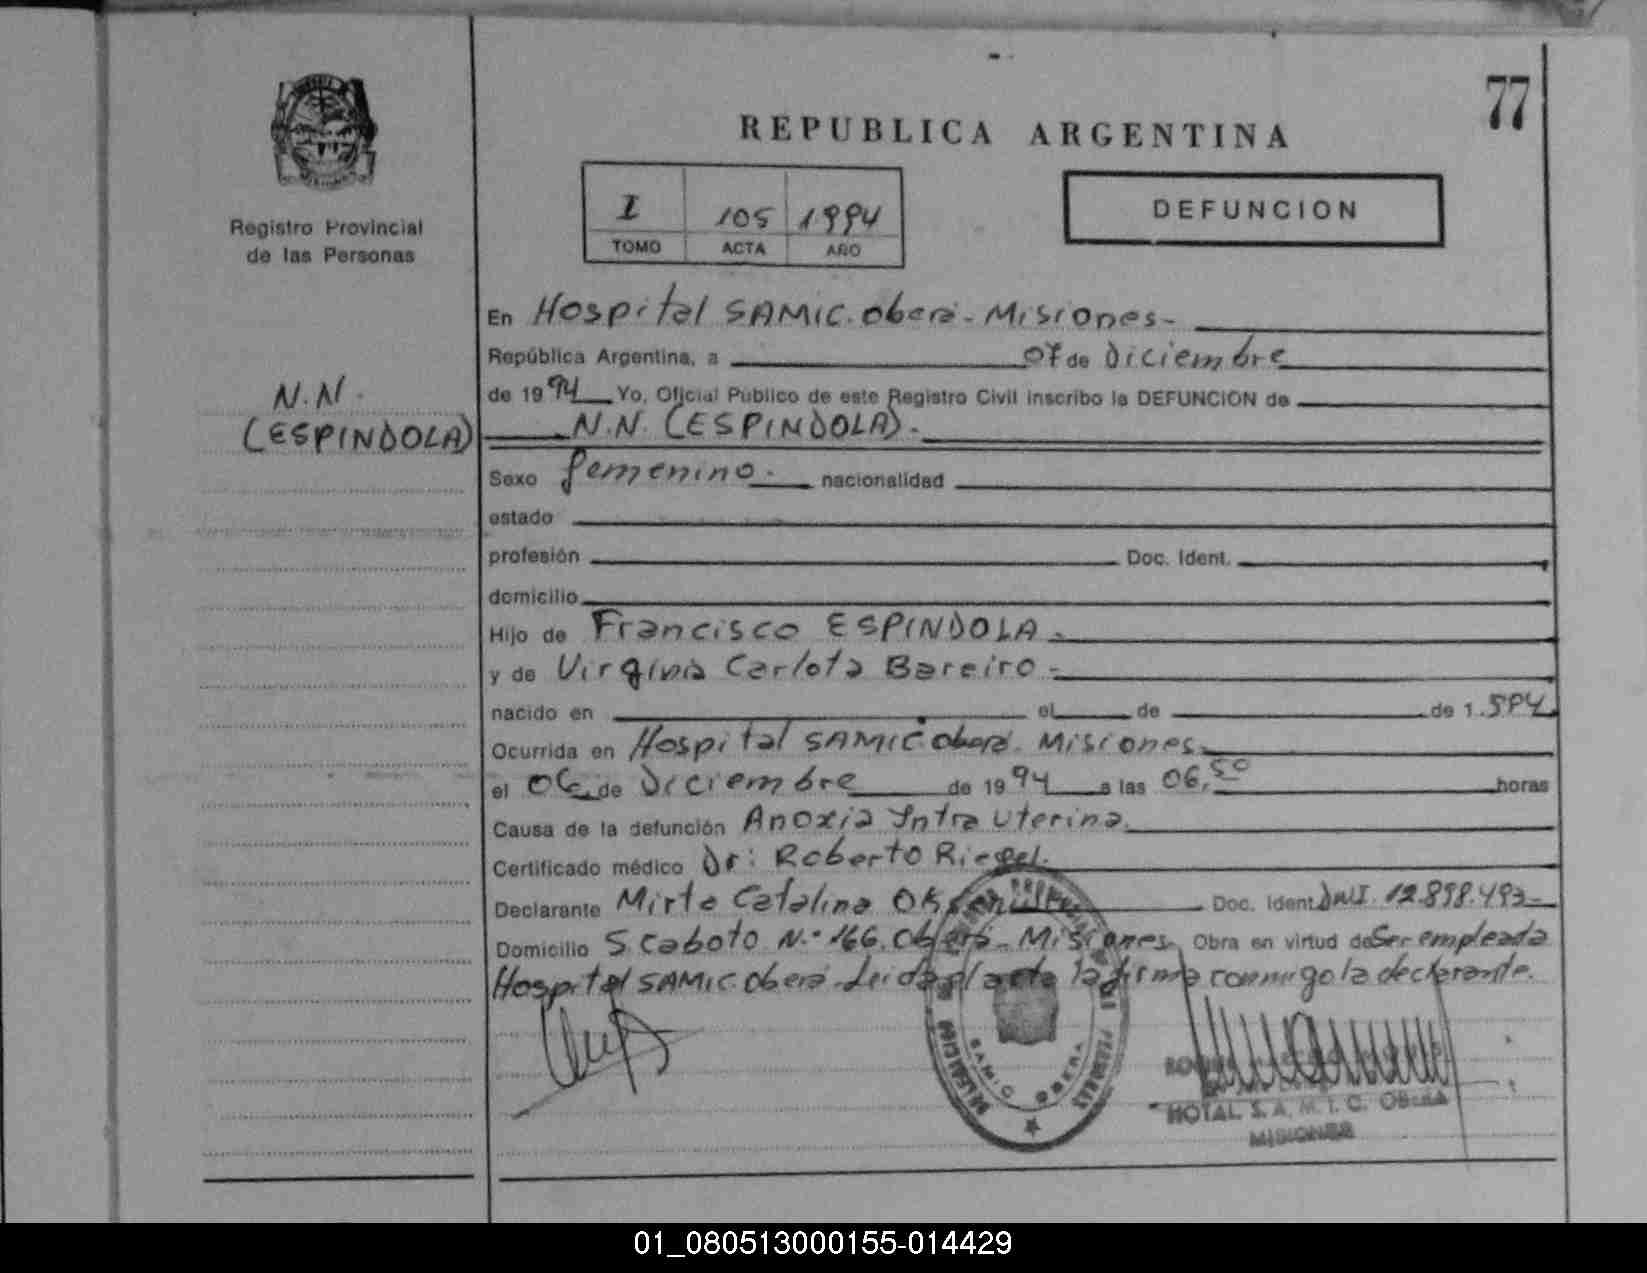 77
REPUBLICA ARGENTINA
I 105 1994
TOMO ACTA AÑO
DEFUNCION
Registro Provincial
de las Personas
N.N.
(ESPINDOLA)
En Hospital SAMIC. oberá - Misiones -
República Argentina, a 07 de Diciembre
de 1994 Yo, Oficial Público de este Registro Civil inscribo la DEFUNCION de
N.N. (ESPINDOLA).
Sexo femenino. nacionalidad
estado
profesión Doc. Ident.
domicilio
Hijo de Francisco ESPINDOLA.
y de Virginia Carlota Bareiro -
nacido en el de de 1.994
Ocurrida en Hospital SAMIC oberá. Misiones.
el 06 de Diciembre de 1994 a las 06,50 horas
Causa de la defunción Anoxia Yntra Uterina.
Certificado médico Dr: Roberto Riegel.
Declarante Mirta Catalina Doc. Ident. DNI. 12.898.493-
Domicilio S. Caboto N.º 166. Oberá - Misiones. Obra en virtud de Ser empleada
Hospital SAMIC oberá. Leída el acta la firma conmigo la declarante.
SAMIC OBERA
HOTAL S.A.M.I.C. OBERA
MISIONES
01_080513000155-014429